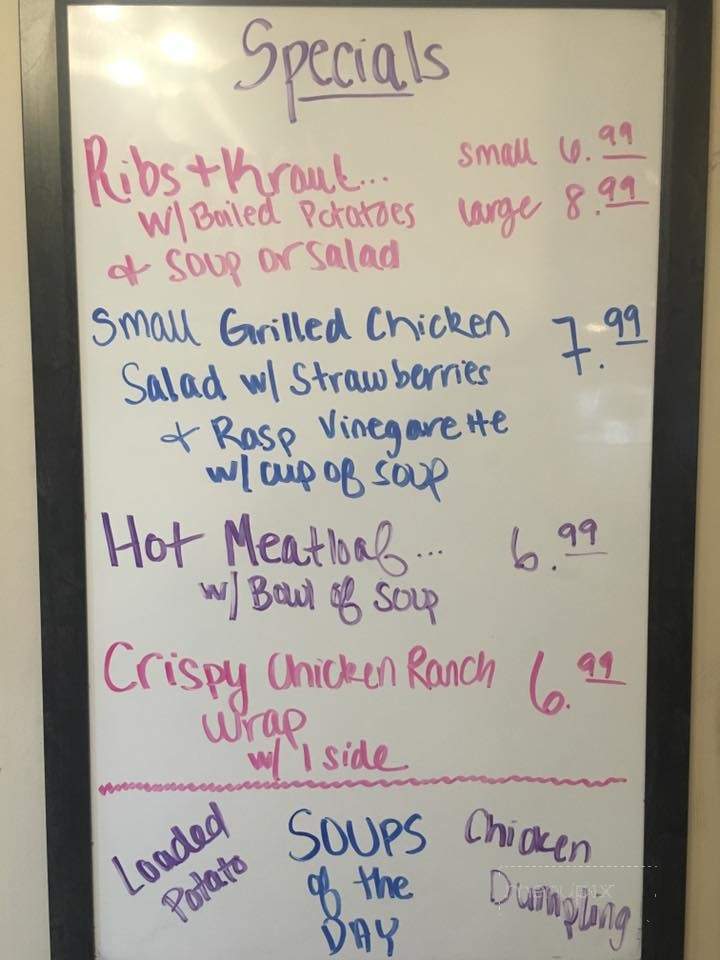 Specials
Ribs + Kraut... small 6.99
w/ Boiled Potatoes large 8.99
+ soup or salad
Small Grilled Chicken 7.99
Salad w/ Strawberries
+ Rasp Vinegarette
w/ cup of soup
Hot Meatloaf... 6.99
w/ Bowl of soup
Crispy Chicken Ranch 6.99
Wrap
w/ 1 side
Loaded Potato
SOUPS
of the
DAY
Chicken
Dumpling